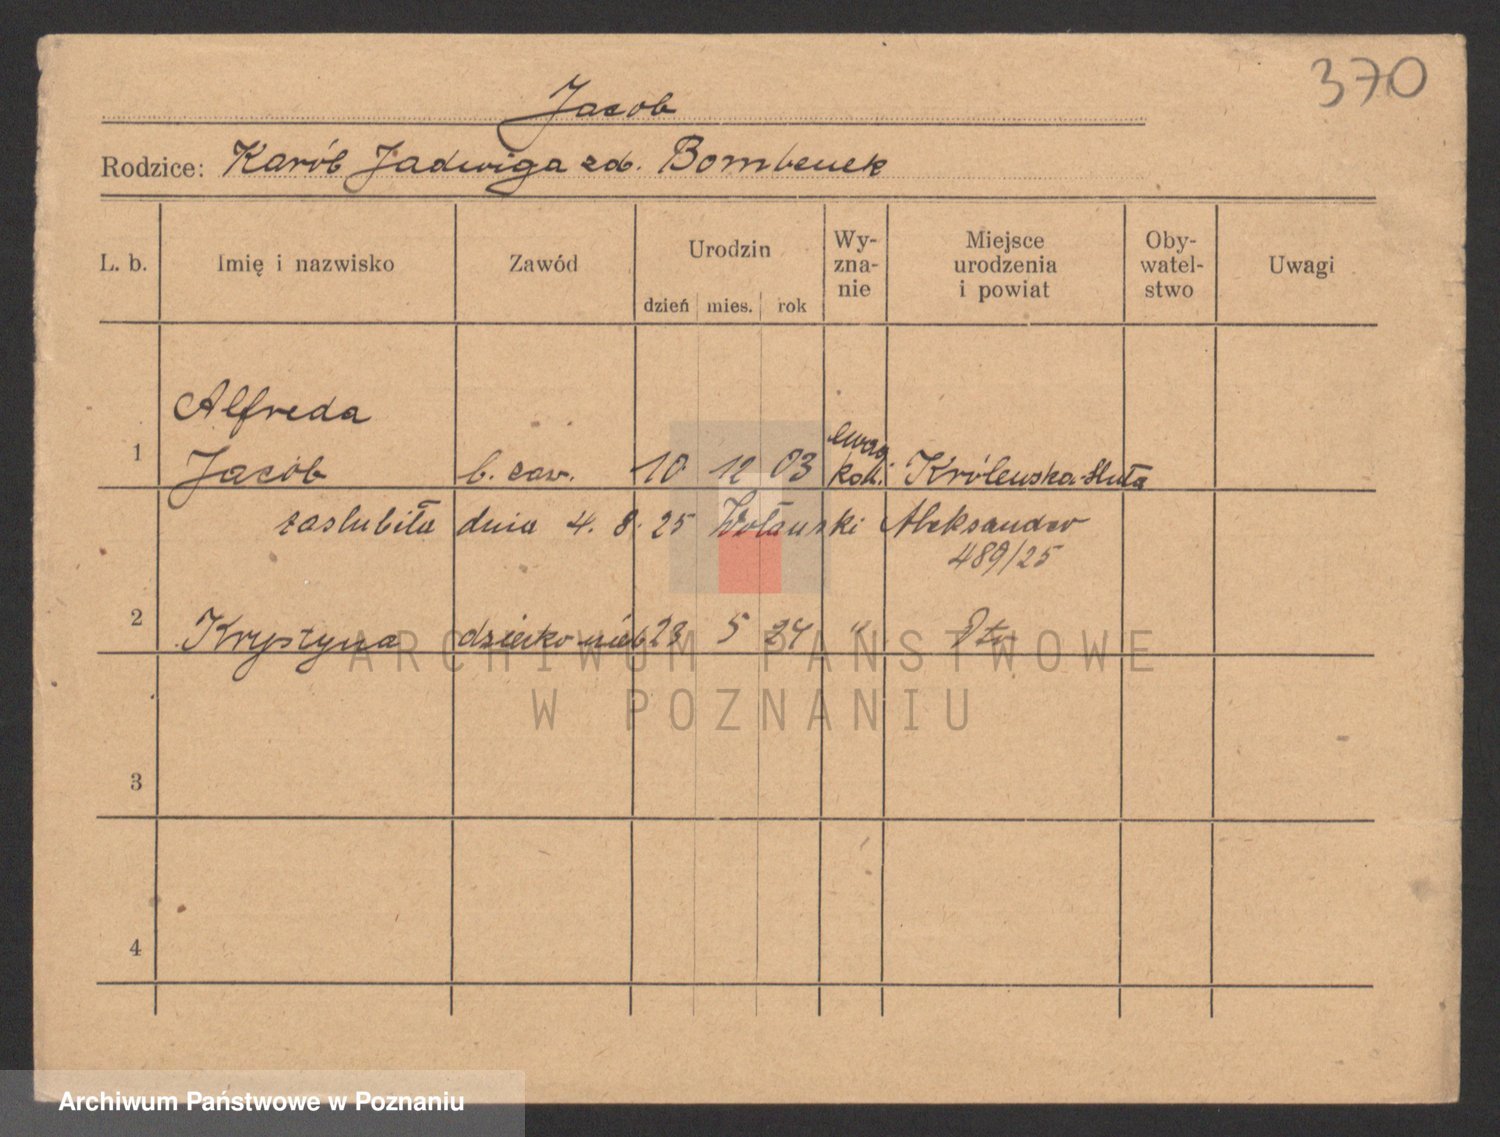 370
Jacob
Rodzice: Karób Jadwiga zd. Bombenek
L. b. Imię i nazwisko Zawód Urodzin dzień mies. rok Wy-zna-nie Miejsce urodzenia i powiat Oby-watel-stwo Uwagi
Alfreda
1 Jacób b. zaw. 10 12 03 ewag kat. Królewska-Huta
zaslubiła dnia 4. 8. 25 Wolanski Aleksander
489/25
2 Krystyna dziecko nieb 23 5 24 "
ARCHIWUM PAŃSTWOWE
W POZNANIU
3
4
Archiwum Państwowe w Poznaniu